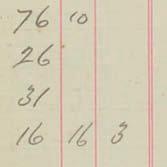 76 10
26
31
16 16 3